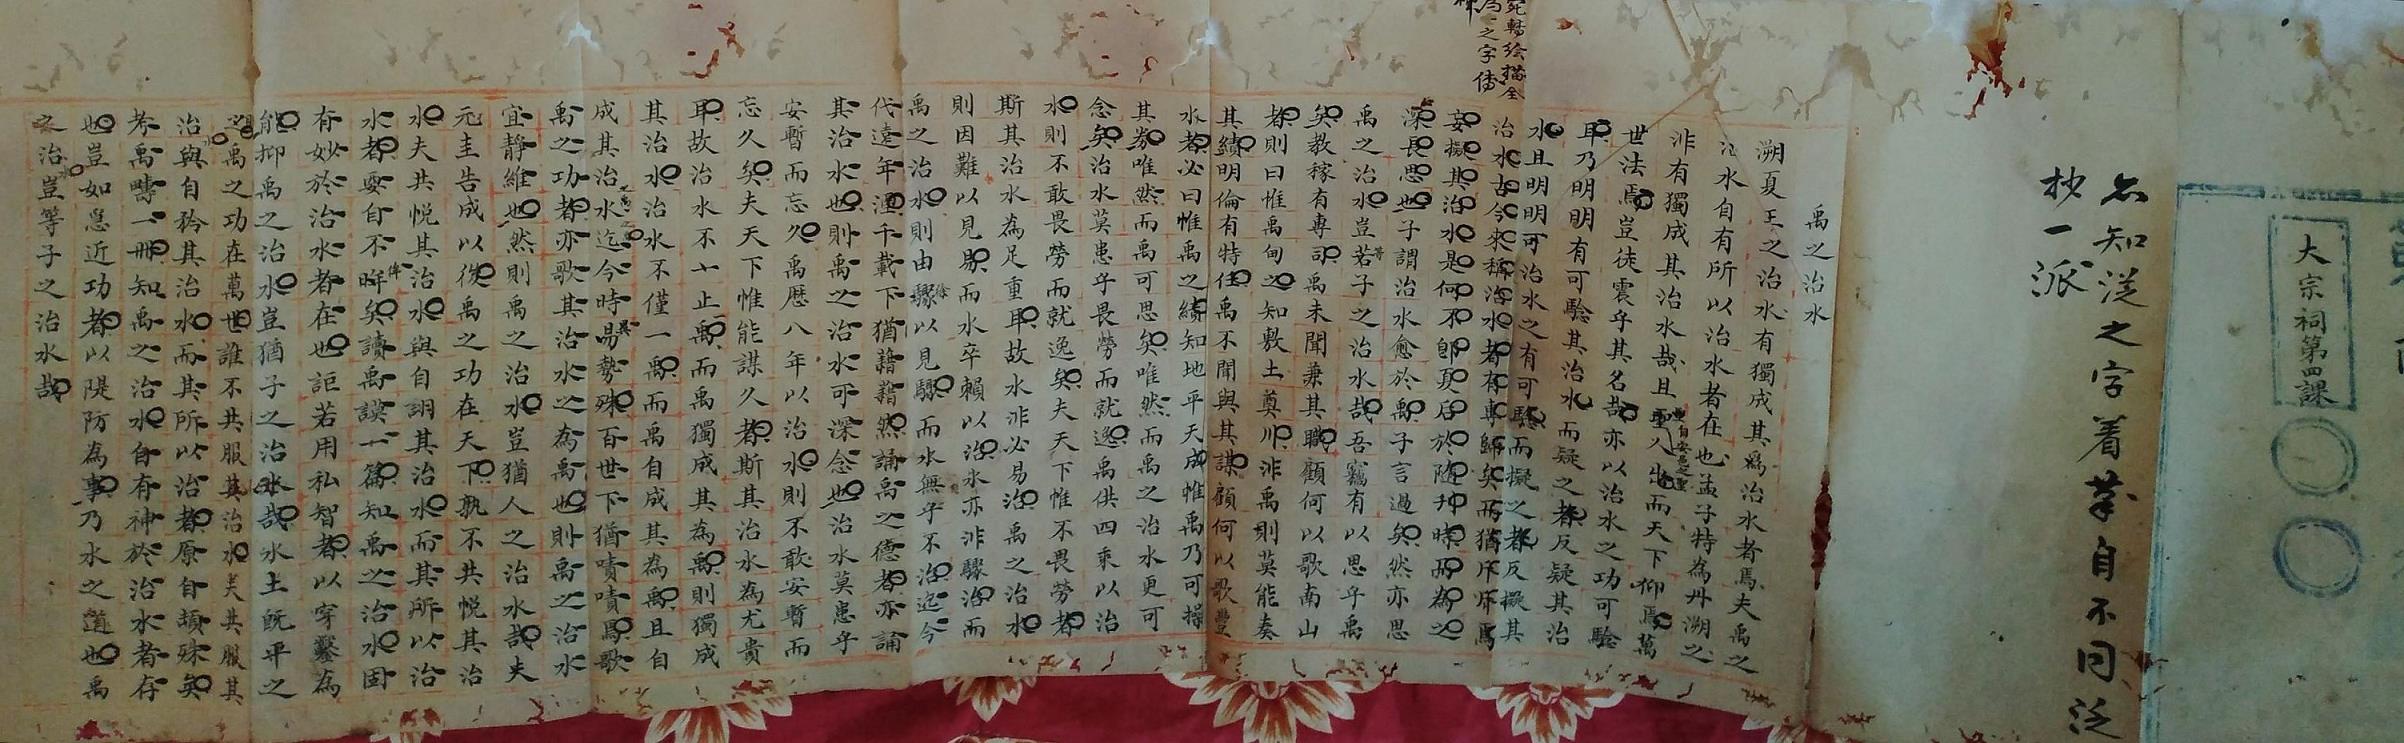 大宗祠第四課
知從之字着筆自不同泛
抄一派
禹之治水
溯夏王之治水有獨成其為治水者焉夫禹之
治水自有所以治水者在也孟子特為丹溯之
非有獨成其治水哉且聖人出而天下仰焉萬
世法焉豈徒震乎其名哉亦以治水之功可騐
耳乃明明有可騐其治水而疑之者反疑其治
水且明明可治水之有可騐而擬之者反擬其
治水古今來稱治水者有專歸矣而猶斤斤焉
妄擬其治水是何不即夏后於隨刊時而為之
深長思也子謂治水愈於禹子言過矣然亦思
禹之治水豈若子之治水哉吾竊有以思乎禹
矣教稼有專司禹未聞兼其職顧何以歌南山
者則曰惟禹甸之知敷土奠川非禹則莫能奏
其績明倫有特任禹不聞與其謀顧何以歌豐
水者必曰惟禹之績知地平天成惟禹乃可操
其券唯然而禹可思矣唯然而禹之治水更可
念矣治水莫患乎畏勞而就逸禹供四乘以治
水則不敢畏勞而就逸矣夫天下惟不畏勞者
斯其治水為足重耳故水非必易治禹之治水
則因難以見易而水卒賴以治水亦非驟治而
禹之治水則由漸以見驟而水無乎不治迄今
代遠年湮千載下猶藉藉然誦禹之德者亦誦
其治水也則禹之治水可深念也治水莫患乎
安暫而忘久禹歷八年以治水則不敢安暫而
忘久矣夫天下惟能謀久者斯其治水為尤貴
耳故治水不止禹而禹獨成其為禹則獨成
其治水治水不僅一禹而禹自成其為禹且自
成其治水迄今時異勢殊百世下猶嘖嘖焉歌
禹之功者亦歌其治水之為禹也則禹之治水
宜靜維也然則禹之治水豈猶人之治水哉夫
元圭告成以後禹之功在天下孰不共悅其治
水夫共悅其治水與自詡其治水而其所以治
水者要自不侔矣讀禹謨一篇知禹之治水固
有妙於治水者在也詎若用私智者以穿鑿為
能抑禹之治水豈猶子之治水哉水土既平之
禹之功在萬世誰不共服其治水夫共服其
治與自矜其治水而其所以治者原自頡殊矣
考禹疇一冊知禹之治水自有神於治水者存
也豈如急近功者以隄防為事乃水之道也禹
之治水豈等子之治水哉